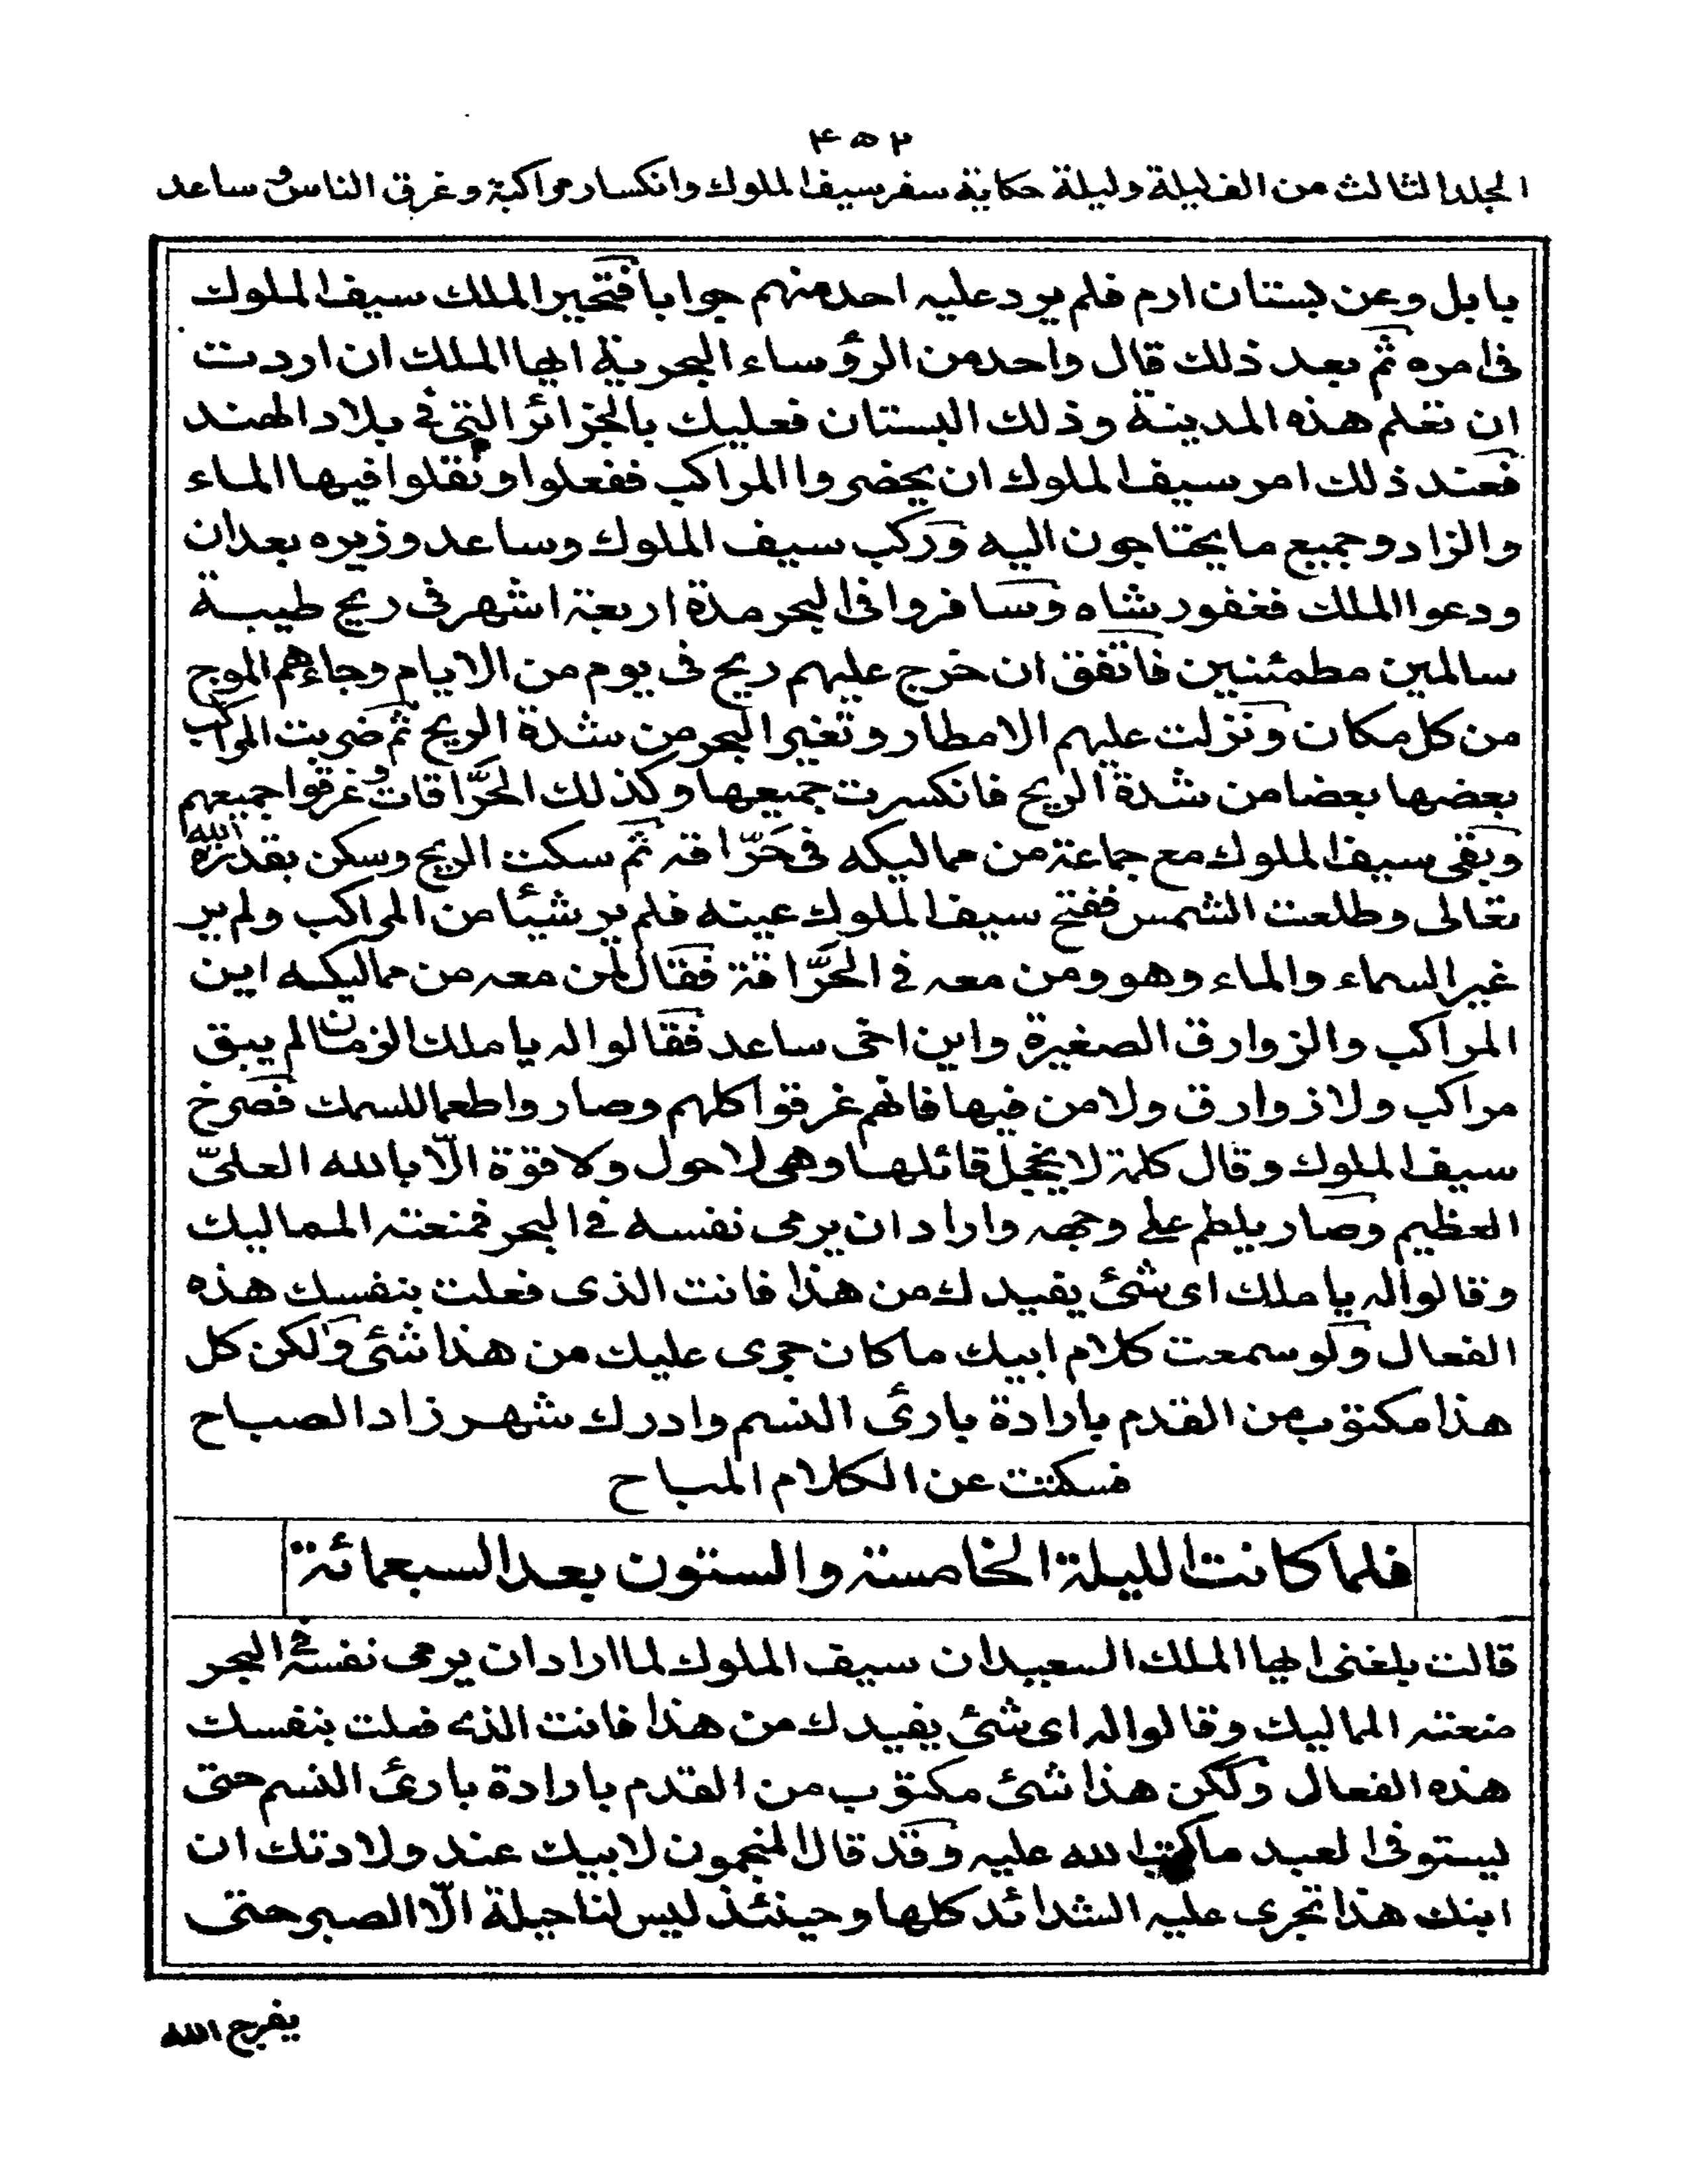 ٤٥٢
المجلد الثالث من الف ليلة وليلة حكاية سفر سيف الملوك وانكسار مراكبة وغرق الناس و ساعد
بابل وعن بستان ارم فلم يرد عليه احد منهم جوابا فتحير الملك سيف الملوك
فى امره ثم بعد ذلك قال واحد من الرؤساء البحرية ايها الملك ان اردت
ان تعلم هذه المدينة وذلك البستان فعليك بالجزائر التى فى بلاد الهند
فعند ذلك امر سيف الملوك ان يحضروا المراكب ففعلوا ونقلوا فيها الماء
والزاد وجميع ما يحتاجون اليه وركب سيف الملوك وساعد وزيره بعد ان
ودعوا الملك فغفور شاه وسافروا فى البحر مدة اربعة اشهر فى ريح طيبة
سالمين مطمئنين فاتفق ان خرج عليهم ريح فى يوم من الايام وجاءهم الموج
من كل مكان ونزلت عليهم الامطار وتغير البحر من شدة الريح ثم ضربت المراكب
بعضها بعضا من شدة الريح فانكسرت جميعها وكذلك الحرّاقات وغرقوا جميعهم
وبقى سيف الملوك مع جماعة من مماليكه فى حَرّاقة ثم سكت الريح وسكن بقدرة الله
تعالى وطلعت الشمس ففتح سيف الملوك عينه فلم ير شيئا من المراكب ولم ير
غير السماء والماء وهو ومن معه فى الحَرّاقة فقال لمن معه من مماليكه اين
المراكب والزوارق الصغيرة واين اخى ساعد فقالوا له يا ملك الزمان لم يبق
مراكب ولا زوارق ولا من فيها فانهم غرقوا كلهم وصاروا طعما للسمك فصرخ
سيف الملوك وقال كلمة لا يخجل قائلها وهى لا حول ولا قوّة الّا بالله العلىّ
العظيم وصار يلطم على وجهه واراد ان يرمى نفسه فى البحر فمنعته المماليك
وقالوا له يا ملك اى شئ يفيدك من هذا فانت الذى فعلت بنفسك هذه
الفعال ولو سمعت كلام ابيك ما كان جرى عليك من هذا شئ ولكن كل
هذا مكتوب من القدم بارادة بارئ النسم وادرك شهرزاد الصباح
فسكتت عن الكلام المباح
فلما كانت الليلة الخامسة والستون بعد السبعمائة
قالت بلغنى ايها الملك السعيد ان سيف الملوك لما اراد ان يرمى نفسه فى البحر
منعته المماليك وقالوا له اى شئ يفيدك من هذا فانت الذى فعلت بنفسك
هذه الفعال ولكن هذا شئ مكتوب من القدم بارادة بارئ النسم حتى
يستوفى العبد ما كتب الله عليه وقد قال المنجمون لابيك عند ولادتك ان
ابنك هذا تجرى عليه الشدائد كلها وحينئذ ليس لنا حيلة الّا الصبر حتى
يفرج الله